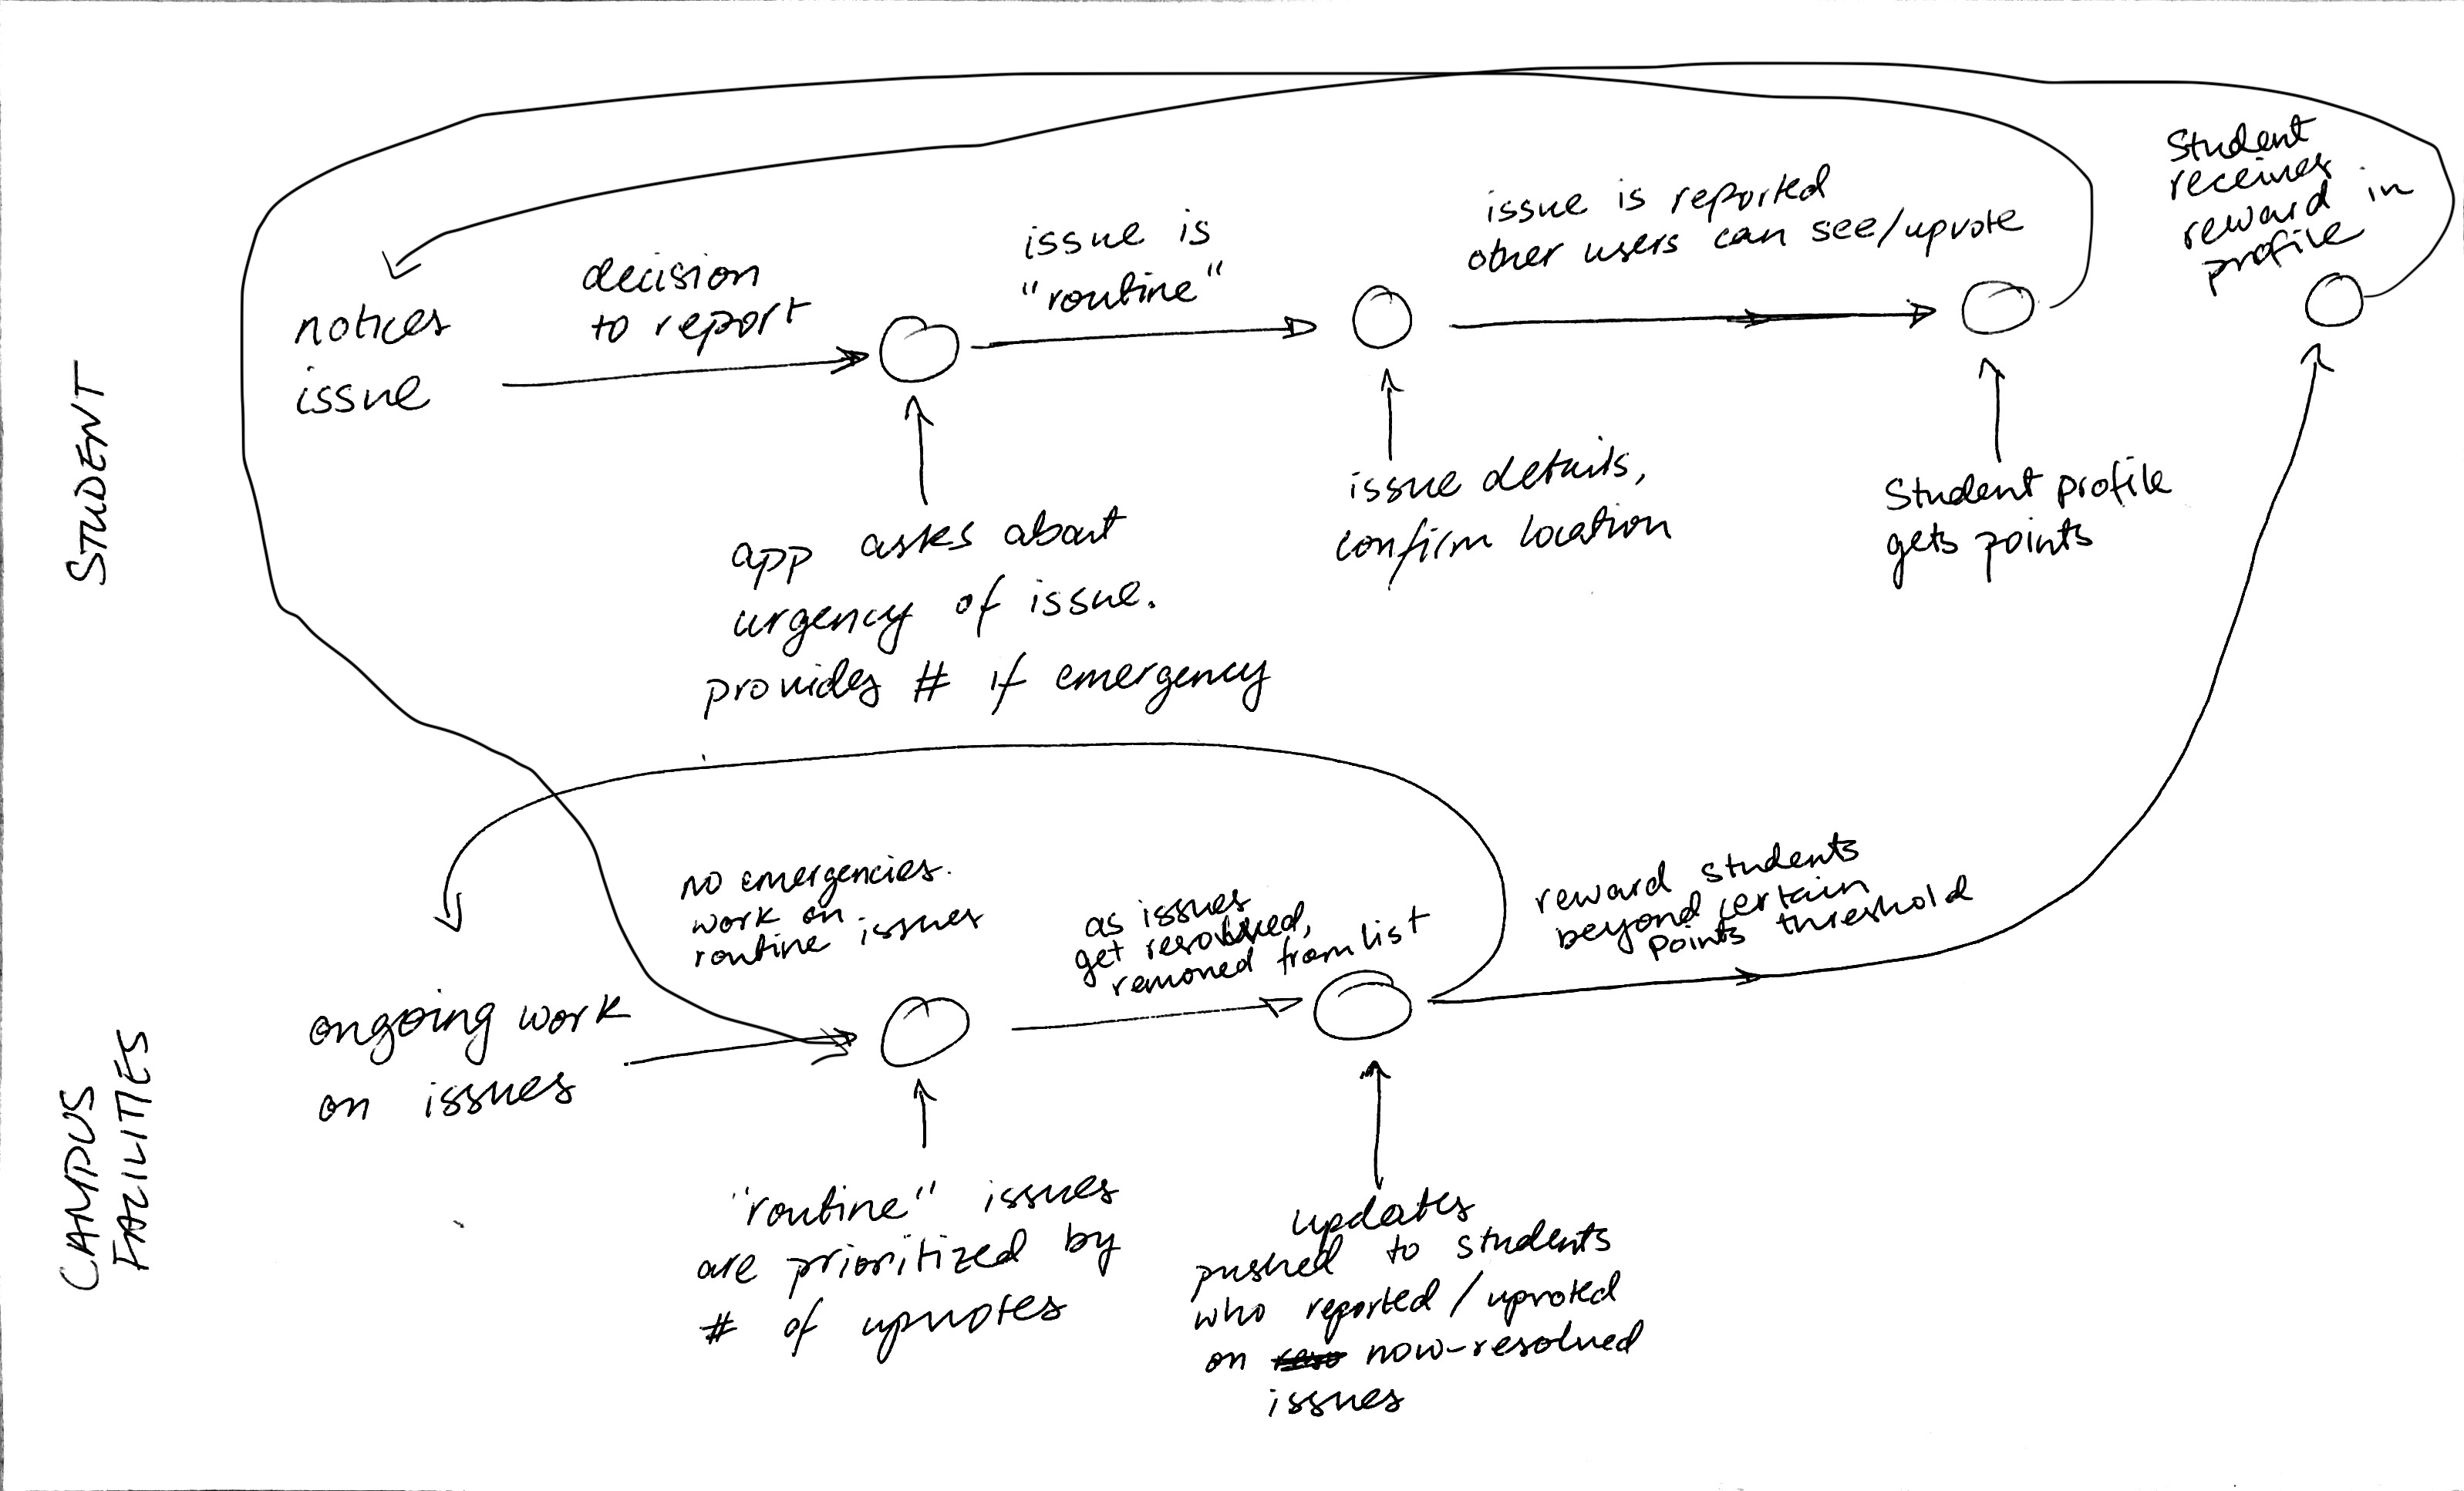 STUDENT
notices
issue
decision
to report
app asks about
urgency of issue.
provides # if emergency
issue is
"routine"
issue details,
confirm location
issue is reported
other users can see/upvote
Student profile
gets points
Student
receives
reward in
profile
CAMPUS
FACILITIES
ongoing work
on issues
no emergencies.
work on
routine issues
"routine" issues
are prioritized by
# of upvotes
as issues
get resolved,
removed from list
updates
pushed to students
who reported/upvoted
on now-resolved
issues
reward students
beyond certain
points threshold